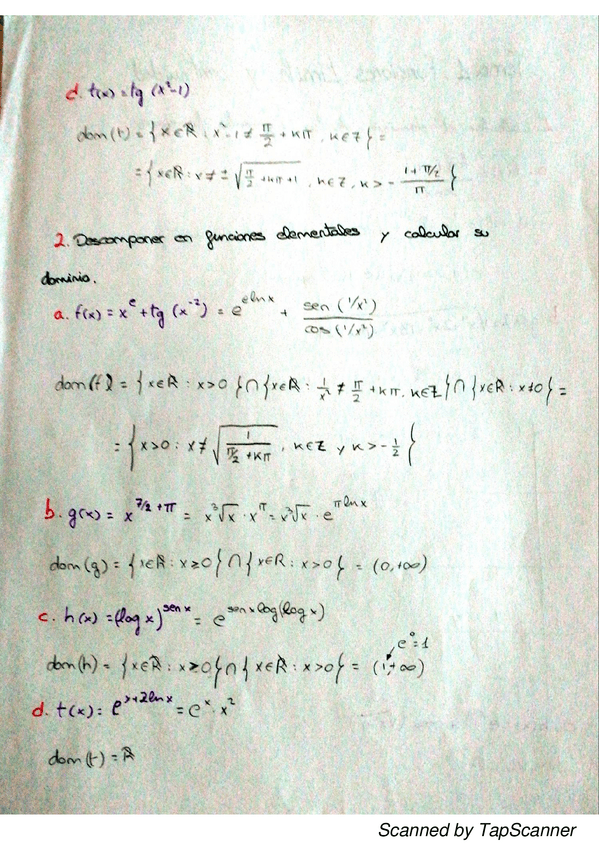 d. t(x) = tg (x²-1)
dom(t) = { x∈ℝ : x²-1 ≠ π/2 + kπ, k∈Z } =
= { x∈ℝ : x ≠ ± √(π/2 + kπ + 1), k∈Z, k > - (1+π/2)/π }
2. Descomponer en funciones elementales y calcular su
dominio.
a. f(x) = x^e + tg (x^-2) = e^(e ln x) + sen (1/x²)/cos (1/x²)
dom(f) = { x∈ℝ : x>0 } ∩ { x∈ℝ : 1/x² ≠ π/2 + kπ, k∈Z } ∩ { x∈ℝ : x≠0 } =
= { x>0 : x ≠ √(1/(π/2 + kπ)), k∈Z y k > - 1/2 }
b. g(x) = x^(7/2 + π) = x³√x · x^π = x³√x · e^(π ln x)
dom(g) = { x∈ℝ : x≥0 } ∩ { x∈ℝ : x>0 } = (0, +∞)
c. h(x) = (log x)^(sen x) = e^(sen x log(log x))
e⁰=1
dom(h) = { x∈ℝ : x≥0 } ∩ { x∈ℝ : x>0 } = (1, +∞)
d. t(x) = e^(x+2ln x) = e^x · x²
dom(t) = ℝ
Scanned by TapScanner